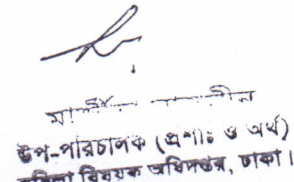 উপ-পরিচালক (প্রশাঃ ও অর্থ)
মহিলা বিষয়ক অধিদপ্তর, ঢাকা।